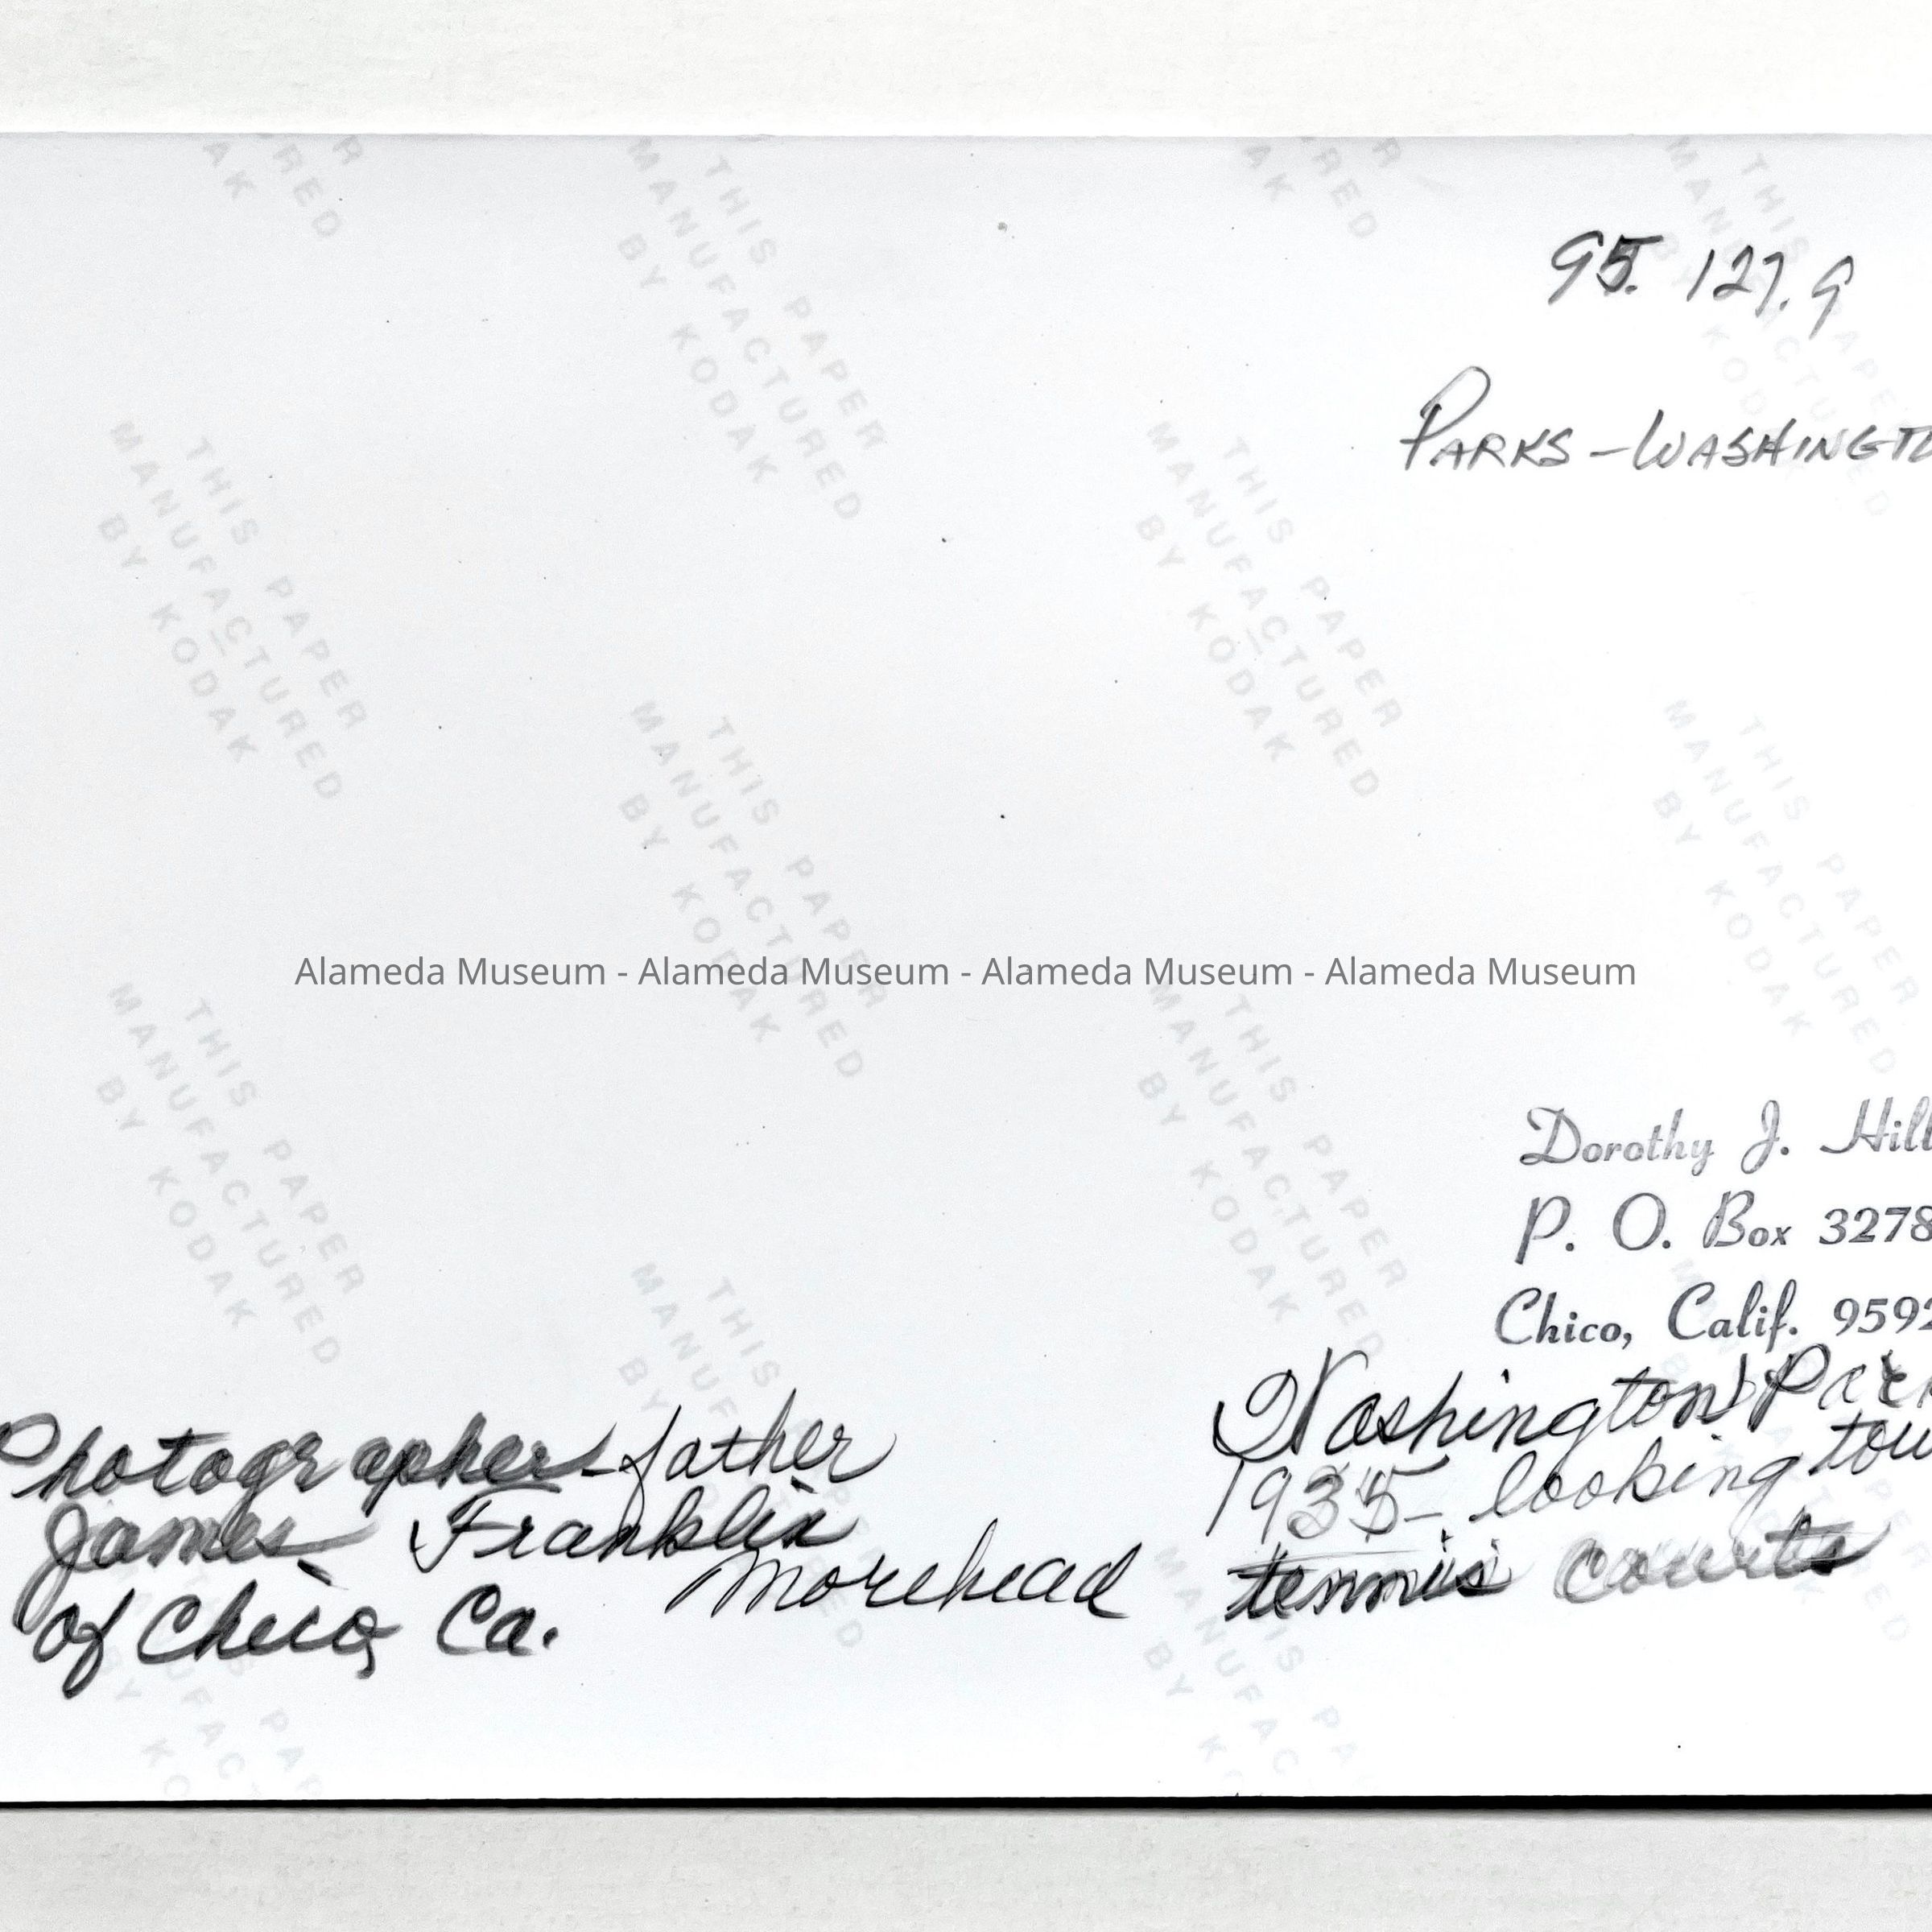 95.127.9
PARKS - WASHINGTO
THIS PAPER
MANUFACTURED
BY KODAK
Alameda Museum - Alameda Museum - Alameda Museum - Alameda Museum
Dorothy J. Hill
P. O. Box 3278
Chico, Calif. 9592
Washington Par
1935 - looking tow
tennis courts
Photographer - father
James Franklin
Morehead
of Chico, Ca.